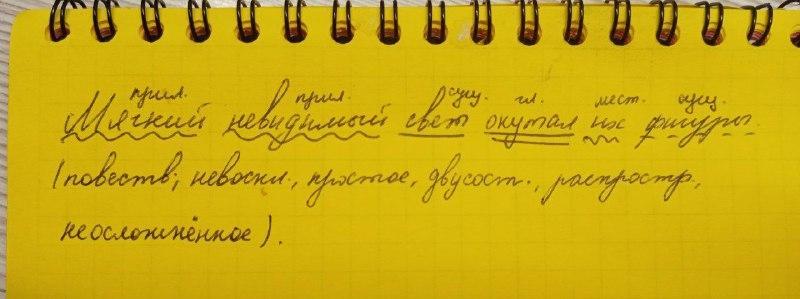 прил. прил. сущ. гл. мест. сущ.
Мягкий невидимый свет окутал их фигуры.
(повеств., невоскл., простое, двусост., распростр.,
неосложнённое).